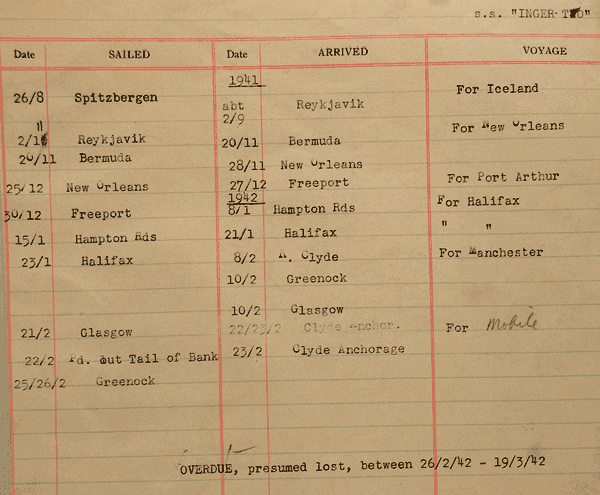 s.s. "INGER TRO"
Date SAILED Date ARRIVED VOYAGE
1941
26/8 Spitzbergen abt 2/9 Reykjavik For Iceland
2/11 Reykjavik 20/11 Bermuda For New Orleans
20/11 Bermuda 28/11 New Orleans
25/12 New Orleans 27/12 Freeport For Port Arthur
1942
30/12 Freeport 8/1 Hampton Rds For Halifax
15/1 Hampton Rds 21/1 Halifax " "
23/1 Halifax 8/2 R. Clyde For Manchester
10/2 Greenock
10/2 Glasgow
21/2 Glasgow 22/23/2 Clyde Anchor. For Mobile
22/2 Pd. out Tail of Bank 23/2 Clyde Anchorage
25/26/2 Greenock
OVERDUE, presumed lost, between 26/2/42 - 19/3/42